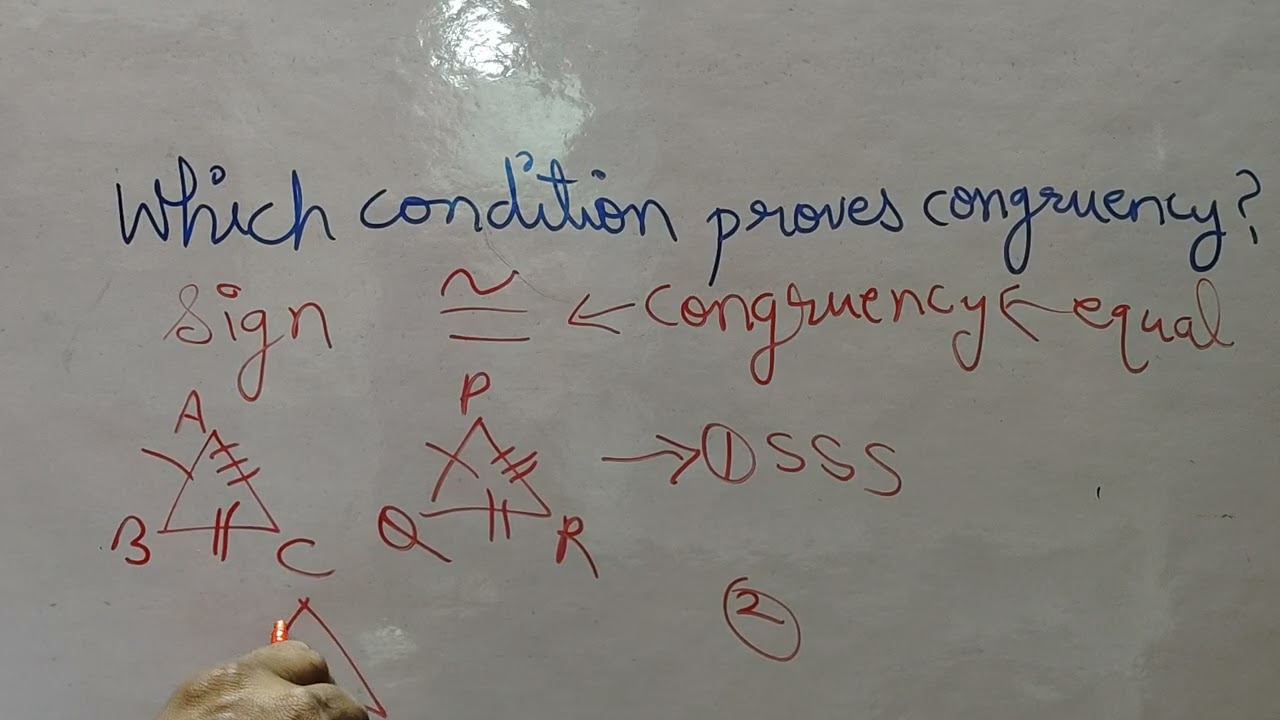 Which condition proves congruency?
Sign ≅ ← congruency ← equal
A P
B C Q R → ① SSS
②